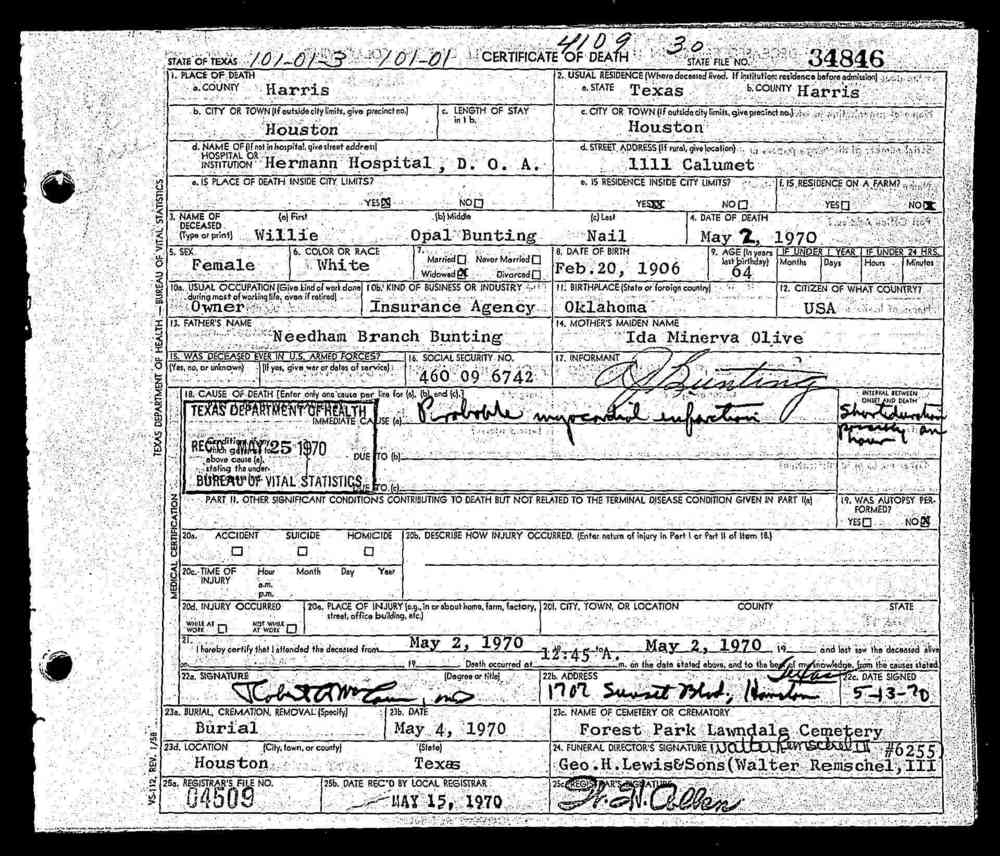 4109 30
STATE OF TEXAS 101-01-3 101-01 CERTIFICATE OF DEATH STATE FILE NO. 34846
1. PLACE OF DEATH
a. COUNTY Harris
2. USUAL RESIDENCE (Where deceased lived. If institution: residence before admission)
a. STATE Texas b. COUNTY Harris
b. CITY OR TOWN (If outside city limits, give precinct no.)
Houston
c. LENGTH OF STAY in 1 b.
c. CITY OR TOWN (If outside city limits, give precinct no.)
Houston
d. NAME OF (If not in hospital, give street address)
HOSPITAL OR
INSTITUTION Hermann Hospital, D. O. A.
d. STREET ADDRESS (If rural, give location)
1111 Calumet
e. IS PLACE OF DEATH INSIDE CITY LIMITS?
YES☒ NO☐
e. IS RESIDENCE INSIDE CITY LIMITS?
YES☒ NO☐
f. IS RESIDENCE ON A FARM?
YES☐ NO☒
3. NAME OF DECEASED (Type or print)
(a) First (b) Middle (c) Last
Willie Opal Bunting Nail
4. DATE OF DEATH
May 2, 1970
5. SEX
Female
6. COLOR OR RACE
White
7.
Married☐ Never Married☐
Widowed☒ Divorced☐
8. DATE OF BIRTH
Feb.20, 1906
9. AGE (In years last birthday)
64
IF UNDER 1 YEAR IF UNDER 24 HRS.
Months Days Hours Minutes
10a. USUAL OCCUPATION (Give kind of work done during most of working life, even if retired)
Owner
10b. KIND OF BUSINESS OR INDUSTRY
Insurance Agency
11. BIRTHPLACE (State or foreign country)
Oklahoma
12. CITIZEN OF WHAT COUNTRY?
USA
13. FATHER'S NAME
Needham Branch Bunting
14. MOTHER'S MAIDEN NAME
Ida Minerva Olive
15. WAS DECEASED EVER IN U.S. ARMED FORCES?
(Yes, no, or unknown) (If yes, give war or dates of service)
16. SOCIAL SECURITY NO.
460 09 6742
17. INFORMANT
Bunting
18. CAUSE OF DEATH [Enter only one cause per line for (a), (b), and (c).]
IMMEDIATE CAUSE (a) Probable myocardial infarction
INTERVAL BETWEEN ONSET AND DEATH
Short duration
possibly an
hour
TEXAS DEPARTMENT OF HEALTH
REC'D MAY 25 1970
BUREAU OF VITAL STATISTICS
Conditions
which
above cause (a),
stating the under-
DUE TO (b)
DUE TO (c)
PART II. OTHER SIGNIFICANT CONDITIONS CONTRIBUTING TO DEATH BUT NOT RELATED TO THE TERMINAL DISEASE CONDITION GIVEN IN PART I(a)
19. WAS AUTOPSY PERFORMED?
YES☐ NO☒
20a. ACCIDENT SUICIDE HOMICIDE
☐ ☐ ☐
20b. DESCRIBE HOW INJURY OCCURRED. (Enter nature of injury in Part I or Part II of Item 18.)
20c. TIME OF INJURY Hour Month Day Year
a.m.
p.m.
20d. INJURY OCCURRED
WHILE AT WORK ☐ NOT WHILE AT WORK ☐
20e. PLACE OF INJURY (e.g., in or about home, farm, factory, street, office building, etc.)
20f. CITY, TOWN, OR LOCATION COUNTY STATE
21.
I hereby certify that I attended the deceased from May 2, 1970 May 2, 1970 19 and last saw the deceased alive
on 19 Death occurred at 12:45 A. m. on the date stated above, and to the best of my knowledge, from the causes stated.
22a. SIGNATURE (Degree or title)
Robert A MD
22b. ADDRESS
1707 Sunset Blvd, Houston Texas
22c. DATE SIGNED
5-13-70
23a. BURIAL, CREMATION, REMOVAL (Specify)
Burial
23b. DATE
May 4, 1970
23c. NAME OF CEMETERY OR CREMATORY
Forest Park Lawndale Cemetery
23d. LOCATION (City, town, or county) (State)
Houston Texas
24. FUNERAL DIRECTOR'S SIGNATURE Walter Remschel III #6255
Geo.H.Lewis&Sons(Walter Remschel,III
25a. REGISTRAR'S FILE NO.
04509
25b. DATE REC'D BY LOCAL REGISTRAR
MAY 15, 1970
25c. REGISTRAR'S SIGNATURE
TEXAS DEPARTMENT OF HEALTH — BUREAU OF VITAL STATISTICS
MEDICAL CERTIFICATION
VS-112, REV. 1/58